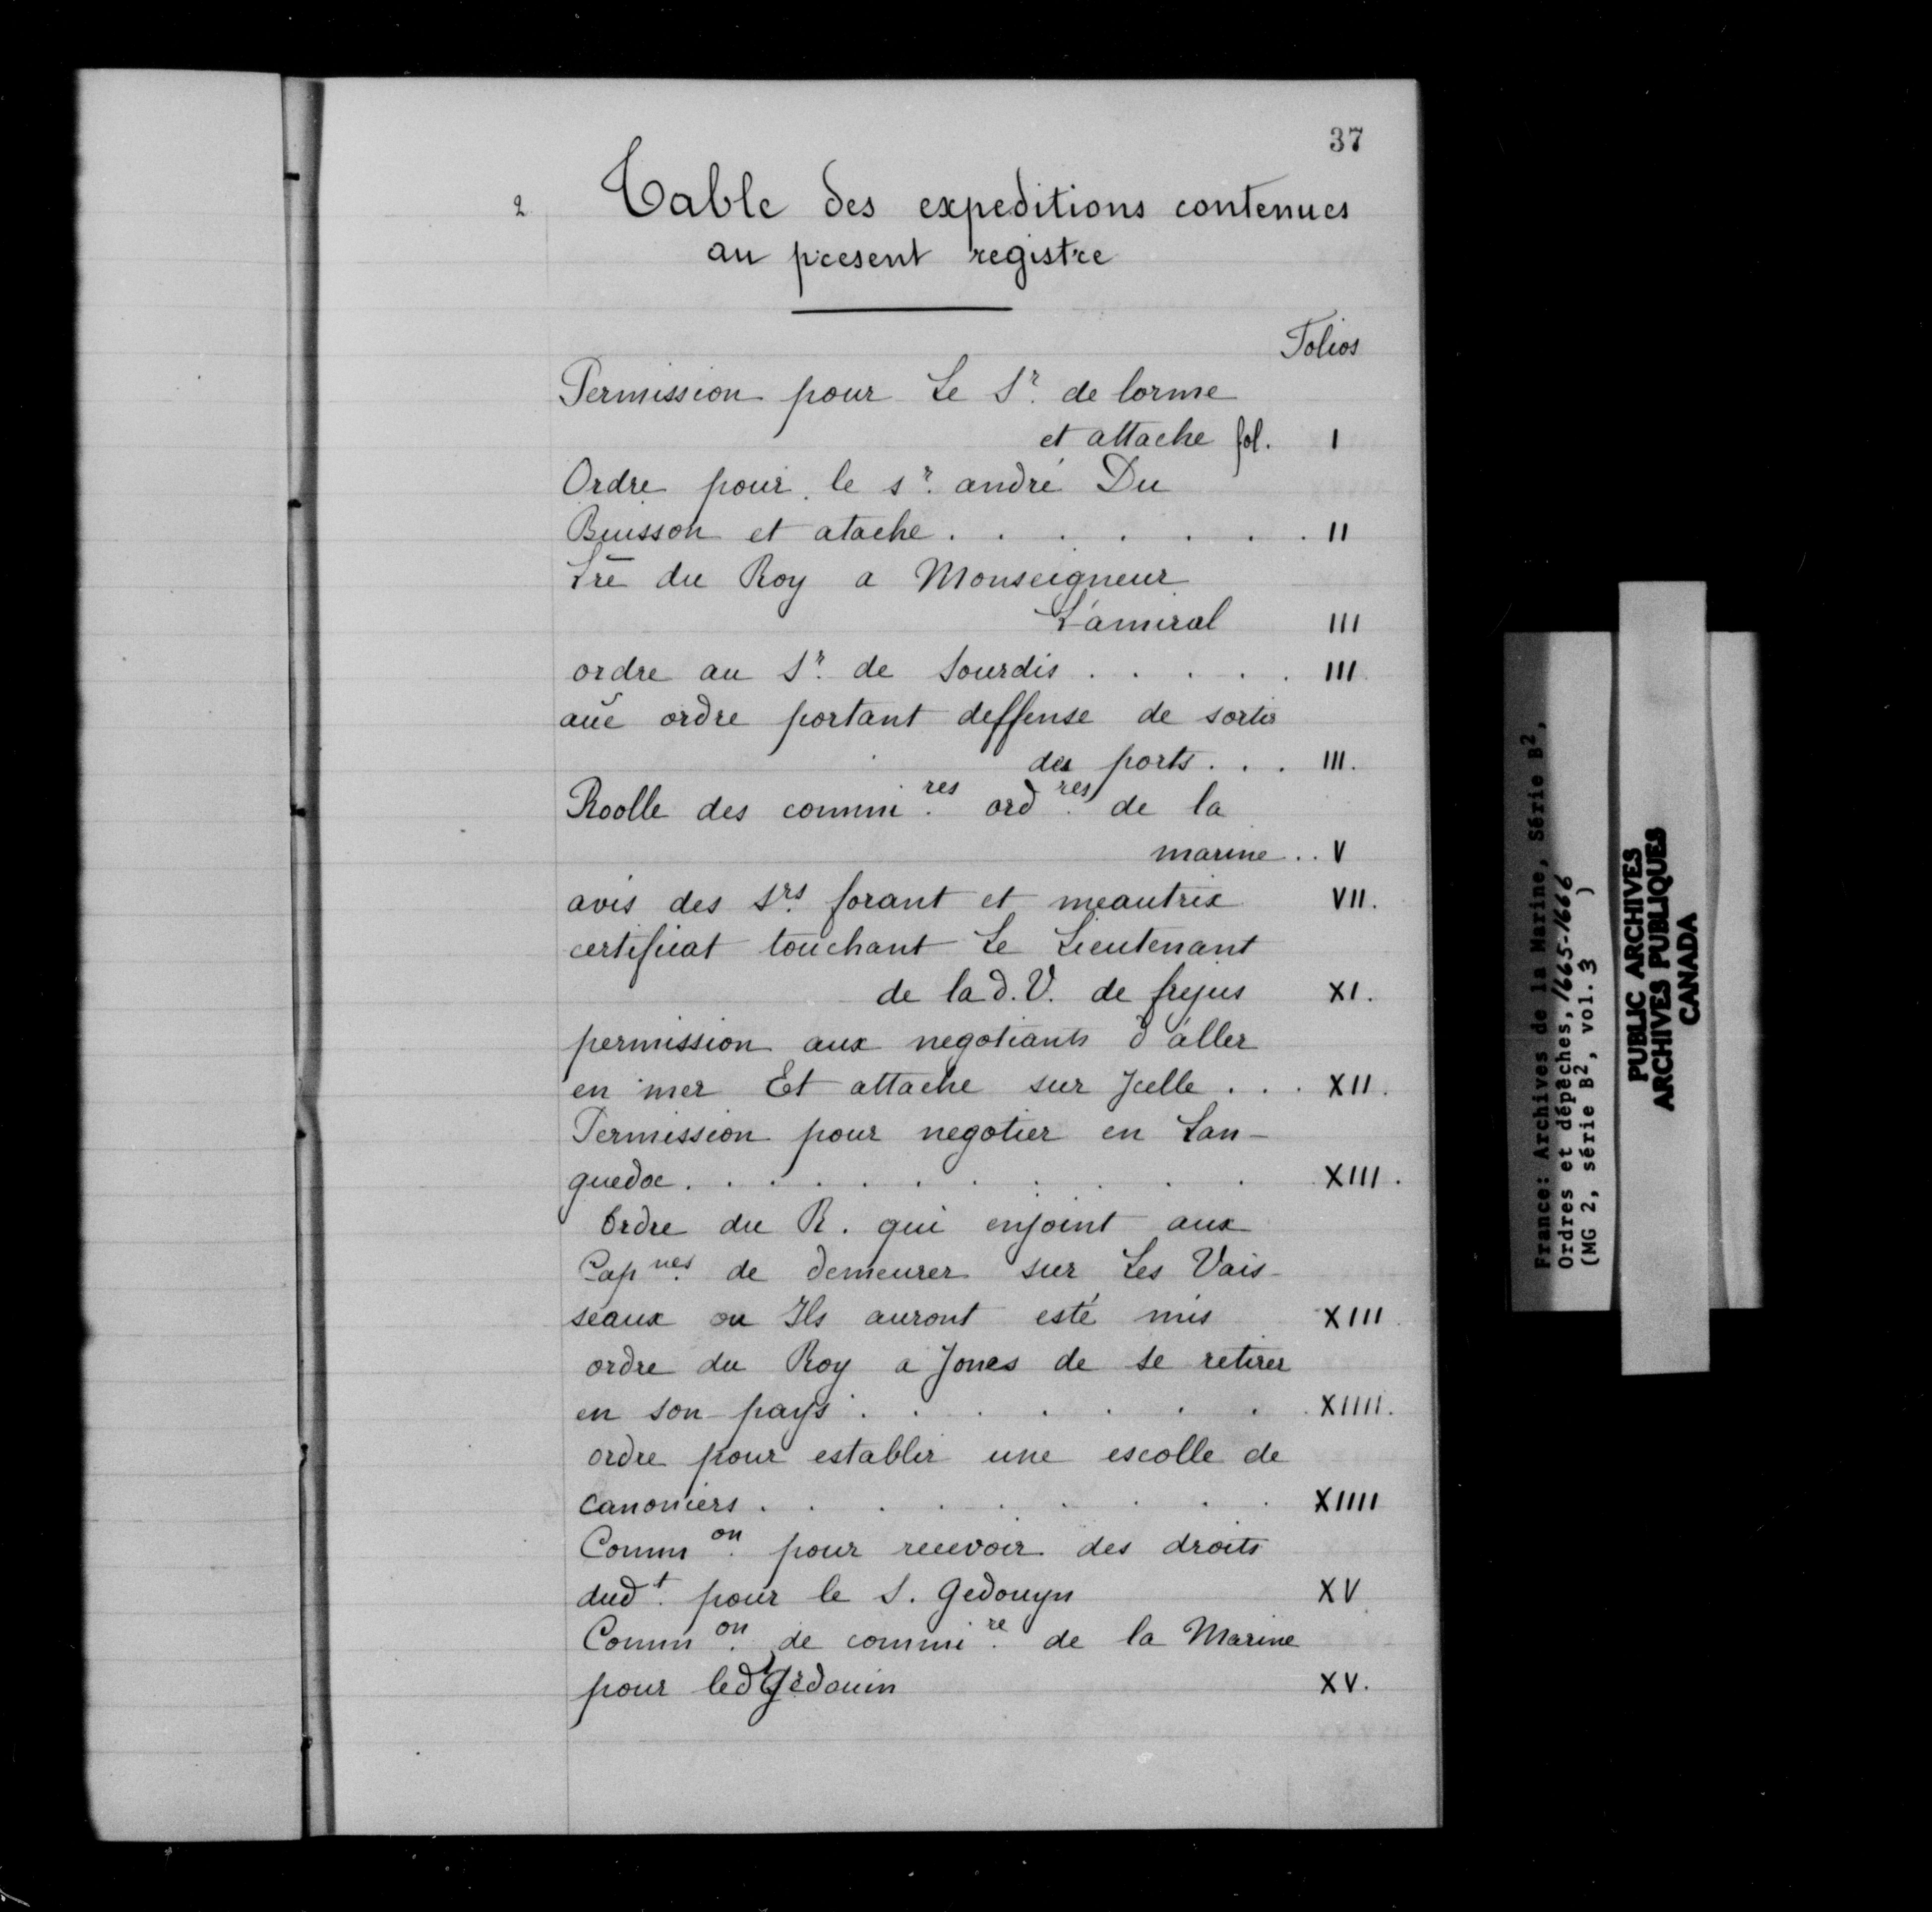 37
2. Table des expeditions contenues
au present registre
Folios
Permission pour Le Sr. de lorme
et attache fol. I
Ordre pour le sr. andré Du
Buisson et atache . . . . . . . II
Lrē du Roy a Monseigneur
L'amiral III
ordre au Sr. de Sourdis . . . . . III
aūē ordre portant deffense de sortir
des ports . . . III.
Roolle des commires. ordres. de la
marine . . V
avis des Srs. forant et meautrix VII.
certificat touchant Le Lieutenant
de la d. V. de frejus XI.
permission aux negotiants d'aller
en mer Et attache sur Jcelle . . . XII.
Permission pour negotier en Lan-
guedoc . . . . . . . . . . XIII.
Ordre du R. qui enjoint aux
Capnes. de demeurer sur Les Vais-
seaux ou Ils auront esté mis XIII
ordre du Roy a Jones de se retirer
en son pays . . . . . . . XIIII.
ordre pour establir une escolle de
canoniers . . . . . . . . . XIIII
Common. pour recevoir des droits
dudt. pour le S. Gedouyn XV
Common. de commire. de la Marine
pour led Gedouin XV.
France: Archives de la Marine, Série B2,
Ordres et dépêches, 1665-1666
(MG 2, série B2, vol. 3 )
PUBLIC ARCHIVES
ARCHIVES PUBLIQUES
CANADA